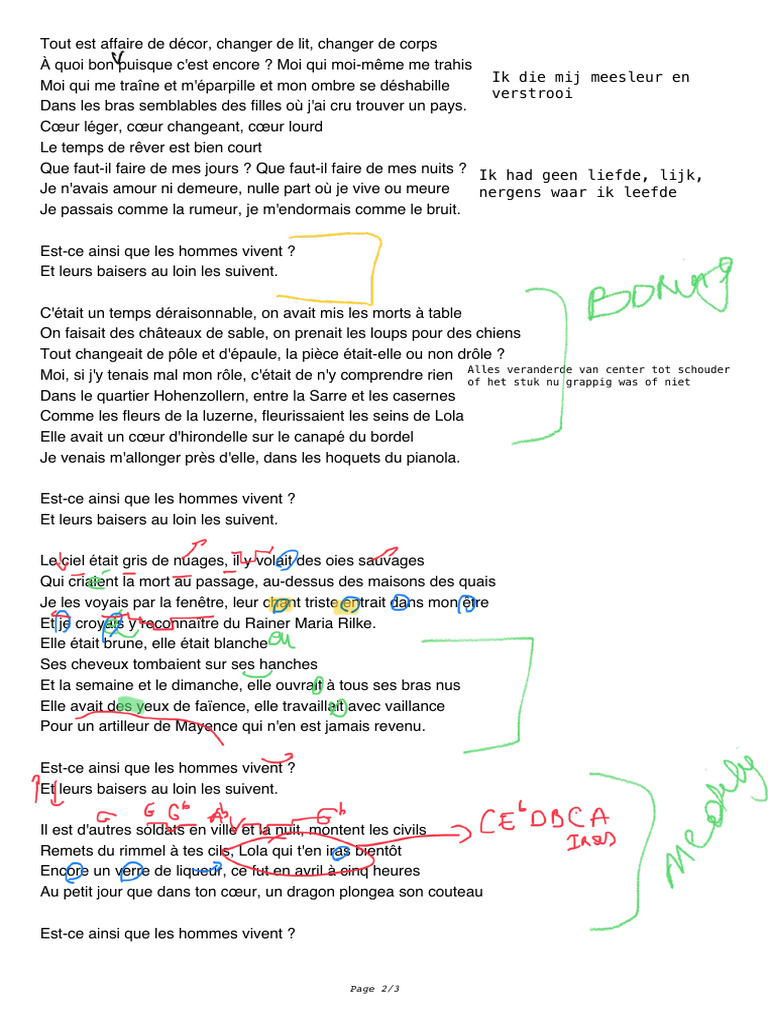 Tout est affaire de décor, changer de lit, changer de corps
À quoi bon puisque c'est encore ? Moi qui moi-même me trahis
Moi qui me traîne et m'éparpille et mon ombre se déshabille
Ik die mij meesleur en
verstrooi
Dans les bras semblables des filles où j'ai cru trouver un pays.
Cœur léger, cœur changeant, cœur lourd
Le temps de rêver est bien court
Que faut-il faire de mes jours ? Que faut-il faire de mes nuits ?
Je n'avais amour ni demeure, nulle part où je vive ou meure
Ik had geen liefde, lijk,
nergens waar ik leefde
Je passais comme la rumeur, je m'endormais comme le bruit.
Est-ce ainsi que les hommes vivent ?
Et leurs baisers au loin les suivent.
BORING
C'était un temps déraisonnable, on avait mis les morts à table
On faisait des châteaux de sable, on prenait les loups pour des chiens
Tout changeait de pôle et d'épaule, la pièce était-elle ou non drôle ?
Moi, si j'y tenais mal mon rôle, c'était de n'y comprendre rien
Alles veranderde van center tot schouder
of het stuk nu grappig was of niet
Dans le quartier Hohenzollern, entre la Sarre et les casernes
Comme les fleurs de la luzerne, fleurissaient les seins de Lola
Elle avait un cœur d'hirondelle sur le canapé du bordel
Je venais m'allonger près d'elle, dans les hoquets du pianola.
Est-ce ainsi que les hommes vivent ?
Et leurs baisers au loin les suivent.
Le ciel était gris de nuages, il y volait des oies sauvages
Qui criaient la mort au passage, au-dessus des maisons des quais
é
Je les voyais par la fenêtre, leur chant triste entrait dans mon être
Et je croyais y reconnaître du Rainer Maria Rilke.
Elle était brune, elle était blanche
ou
Ses cheveux tombaient sur ses hanches
Et la semaine et le dimanche, elle ouvrait à tous ses bras nus
Elle avait des yeux de faïence, elle travaillait avec vaillance
Pour un artilleur de Mayence qui n'en est jamais revenu.
Est-ce ainsi que les hommes vivent ?
Et leurs baisers au loin les suivent.
G G Gb Ab Gb
CEb DBCA
IRAS
Il est d'autres soldats en ville et la nuit, montent les civils
Remets du rimmel à tes cils, Lola qui t'en iras bientôt
Encore un verre de liqueur, ce fut en avril à cinq heures
Au petit jour que dans ton cœur, un dragon plongea son couteau
Est-ce ainsi que les hommes vivent ?
Page 2/3